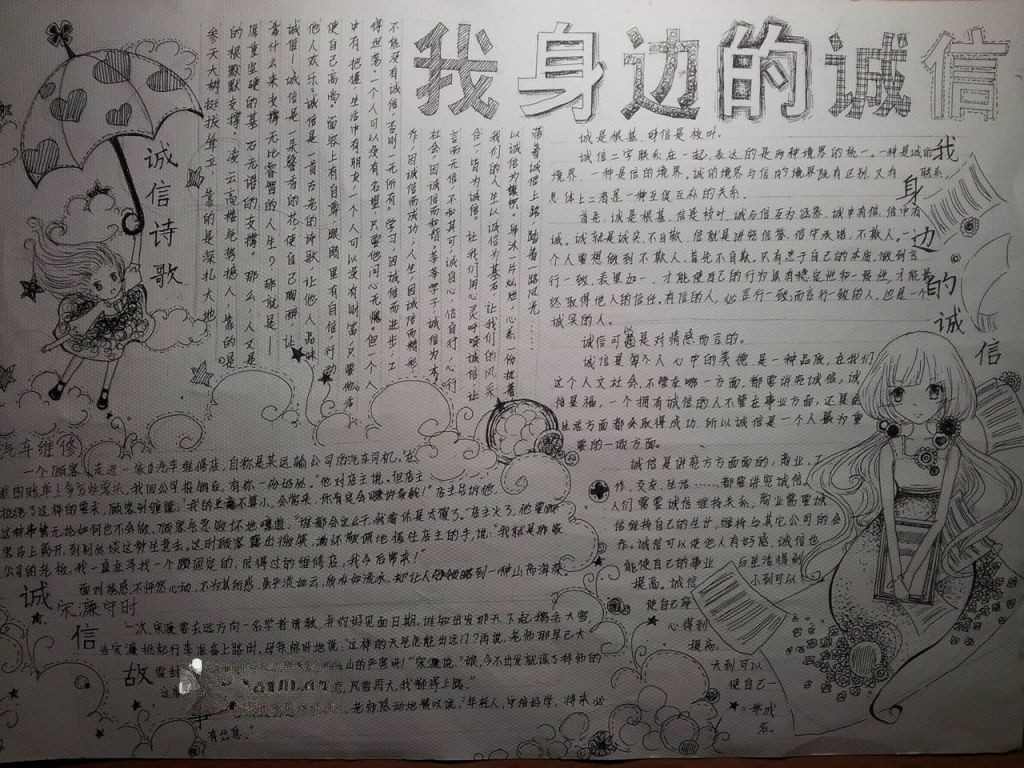 我身边的诚信
诚信诗歌
参天大树挺拔耸立，靠的是深扎大地
的根默默支撑。凌云高楼气势撼人，靠的是
厚重坚硬的基石无语的支撑。那么，人又是
靠什么来支撑无比睿智的人生？那就是——
诚信！诚信是一朵馨香的花，使自己陶醉，让
他人欢乐。诚信是一首古老的诗歌，让他人品味
使自己高尚。面容上有自尊，眼睛里有自信，行动
中有把握，生活中有朋友。一个人可以没有财富，只要他活
得坦荡。一个人可以没有名望，只要他问心无愧。但一个人
不能没有诚信，否则一无所有。学习，因诚信而进步，工
作，因诚信而成功；人生，因诚信而精彩，
社会，因诚信而和谐。莘莘学子，诚信为本。
言而无信，不知其可。诚自心，信自行，心行
合一皆为诚信。让我们用心灵呼唤诚信，让
我们的人生以诚信为基石，让我们的风采
以诚信为旗帜。身沐一片灿烂，心系一份执着
带着诚信上路，踏着一路风光……
我身边的诚信
诚是根基，时信是枝叶。
诚信二字联系在一起，表达的是两种境界的统一。一种是诚的
境界，一种是信的境界，诚的境界与信的境界既有区别，又有联系，
总体上二者是一种互促互从的关系。
首先，诚是根基，信是枝叶，诚与信互为涵养，诚中有信，信中有
诚。诚就是诚实，不自欺，信就是讲究信誉，信守承诺，不欺人。一
个人要想做到不欺人，首先不自欺。只有忠于自己的本质，做到言
行一致，表里如一，才能使自己的行为具有稳定性和一致性，才能最
终取得他人的信任。有信的人，必言行一致，而言行一致的人，也是一个
诚实的人。
诚信可是对情感而言的。
诚信是每个人心中的美德，是一种品质，在我们
这个人文社会，不管在哪一方面，都要讲究诚信，诚
信是福，一个拥有诚信的人不管在事业方面，还是在
生活方面都会取得成功，所以诚信是一个人最为重
要的一项方面。
诚信是讲究方方面面的，商业，工
作，交友，生活……都要讲究诚信。
人们需要诚信维持关系，商业需要诚
信维持自己的生计，维持与其它公司的合
作。诚信可以使他人有好感，诚信也
能使自己的事业与生活得到
提高，诚信小到可以
使自己身
心得到
提高，
大到可以
使自己一
举成
名。
汽车维修
一个顾客走进一家汽车维修店，自称是某运输公司的汽车司机。“在
我的账单上多写些零头，我回公司报销后，有你一份好处。”他对店主说。但店主
拒绝了这样的要求。顾客纠缠道：“我的生意不算小，会常来，你肯定会赚好多钱！”店主告诉他，
这件事情无论如何也不会做。顾客气急败坏地嚷道：“谁都会这么干，我看你是太傻了。”店主火了，他要顾
客马上离开，到别处谈这种生意去。这时顾客露出微笑，满怀敬佩地握住店主的手，说：“我就是那家
公司的老板，我一直在寻找一个固定的，信得过的维修店，我今后常来！”
面对诱惑不怦然心动，不为其所惑，虽平淡如云，质朴如流水，却让人领略到一种山高海深。
诚信故
宋濂守时
一次，宋濂要去远方向一名学者请教，并约好见面日期，谁知出发那天下起鹅毛大雪，
当宋濂挑起行李准备上路时，母亲惊讶地说：“这样的天气怎能出远门？再说，老师那早已大
雪封 山的严寒呀！”宋濂说：“娘，今不出发就误了拜师的
风雪再大，我都得上路。”
老师感动地赞叹说：“年轻人，守信好学，将来必
有出息。”